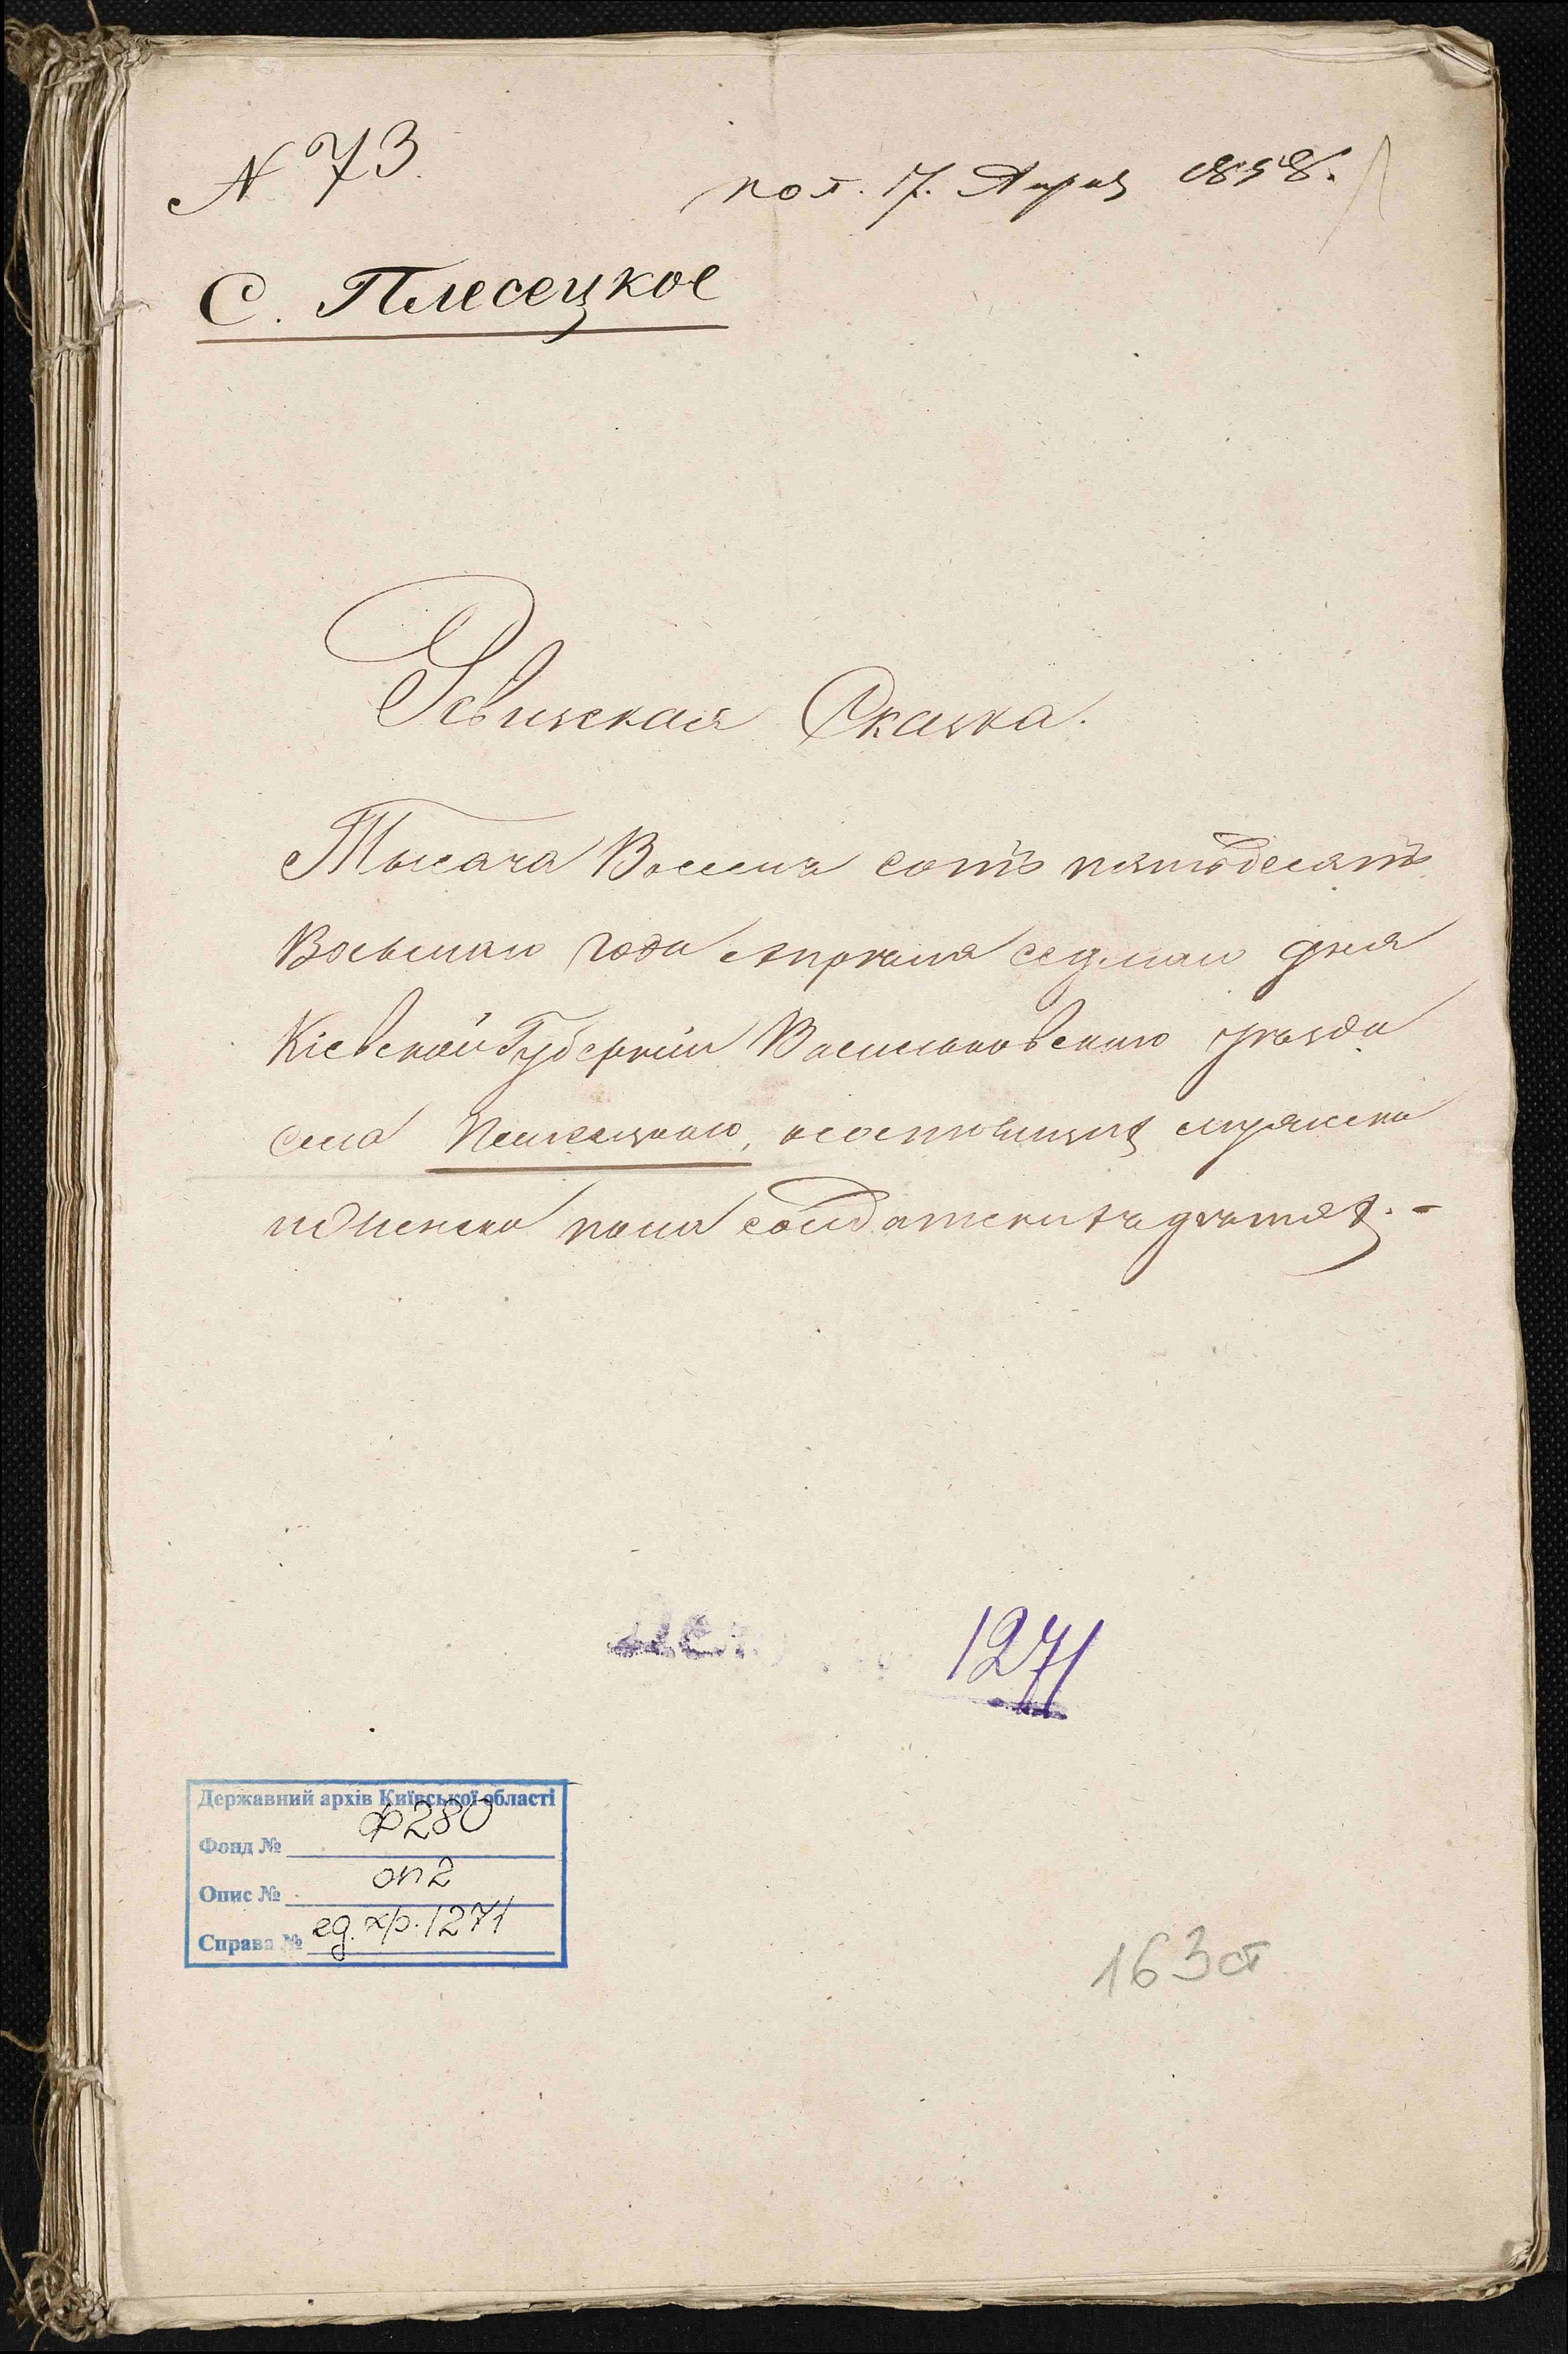 N 73.
пол. 17. Апрел 1858.
С. Плесецкое
Ревизская Сказка.
Тысяча Восемь сотъ пятьдесятъ
Восьмаго года Апрѣля седмаго дня
Кіевской Губерніи Васильковскаго уѣзда
села Плесецкаго, о состоящихъ мужеска
и женска пола солдатскихъ дѣтях.-
1271
Державний архів Київської області
Фонд № ф 280
Опис № оп 2
Справа № ед. хр. 1271
163